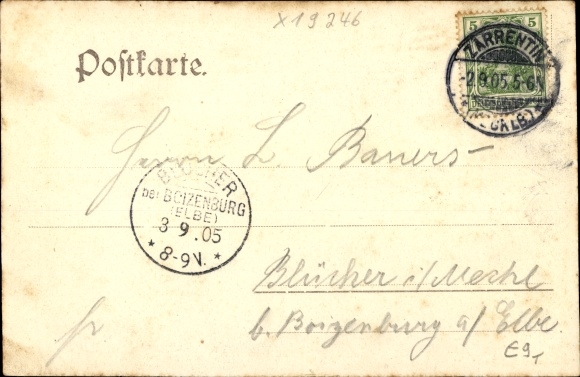 X19246
Postkarte.
5 5
ZARRENTIN
-2.9.05.5-6N
*(MECKLB)*
Herrn L. Bauers
BLÜCHER
bei BOIZENBURG
(ELBE)
3 9 .05
* 8-9V. *
Blücher i/Meckl
b. Boizenburg a/ Elbe.
E9,